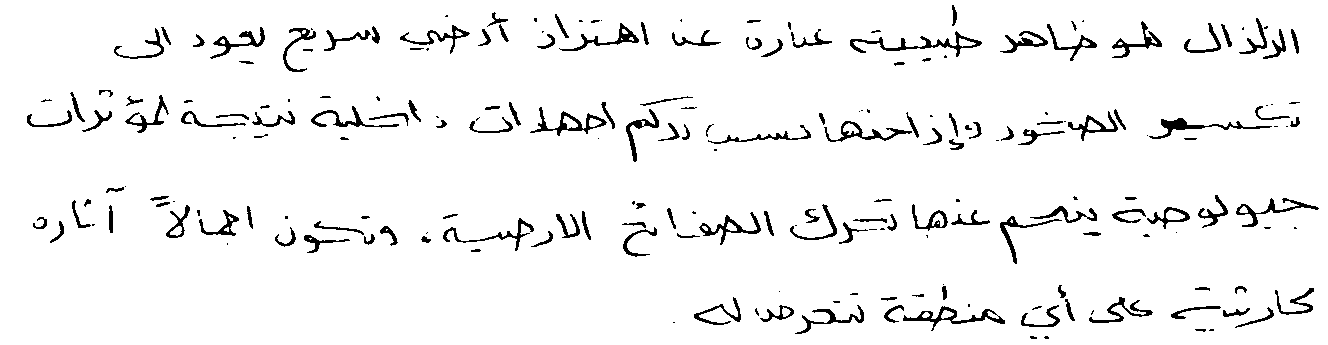 الزلزال هو ظاهر طبيعية عبارة عن اهتزاز أرضي سريع يعود الى
تكسير الصخور وإزاحتها بسبب تركم اجهادات داخلية نتيجة لمؤثرات
جيولوجية ينجم عنها تحرك الصفائح الارضية، وتكون اجمالاً آثاره
كارثية على أي منطقة تتعرض له